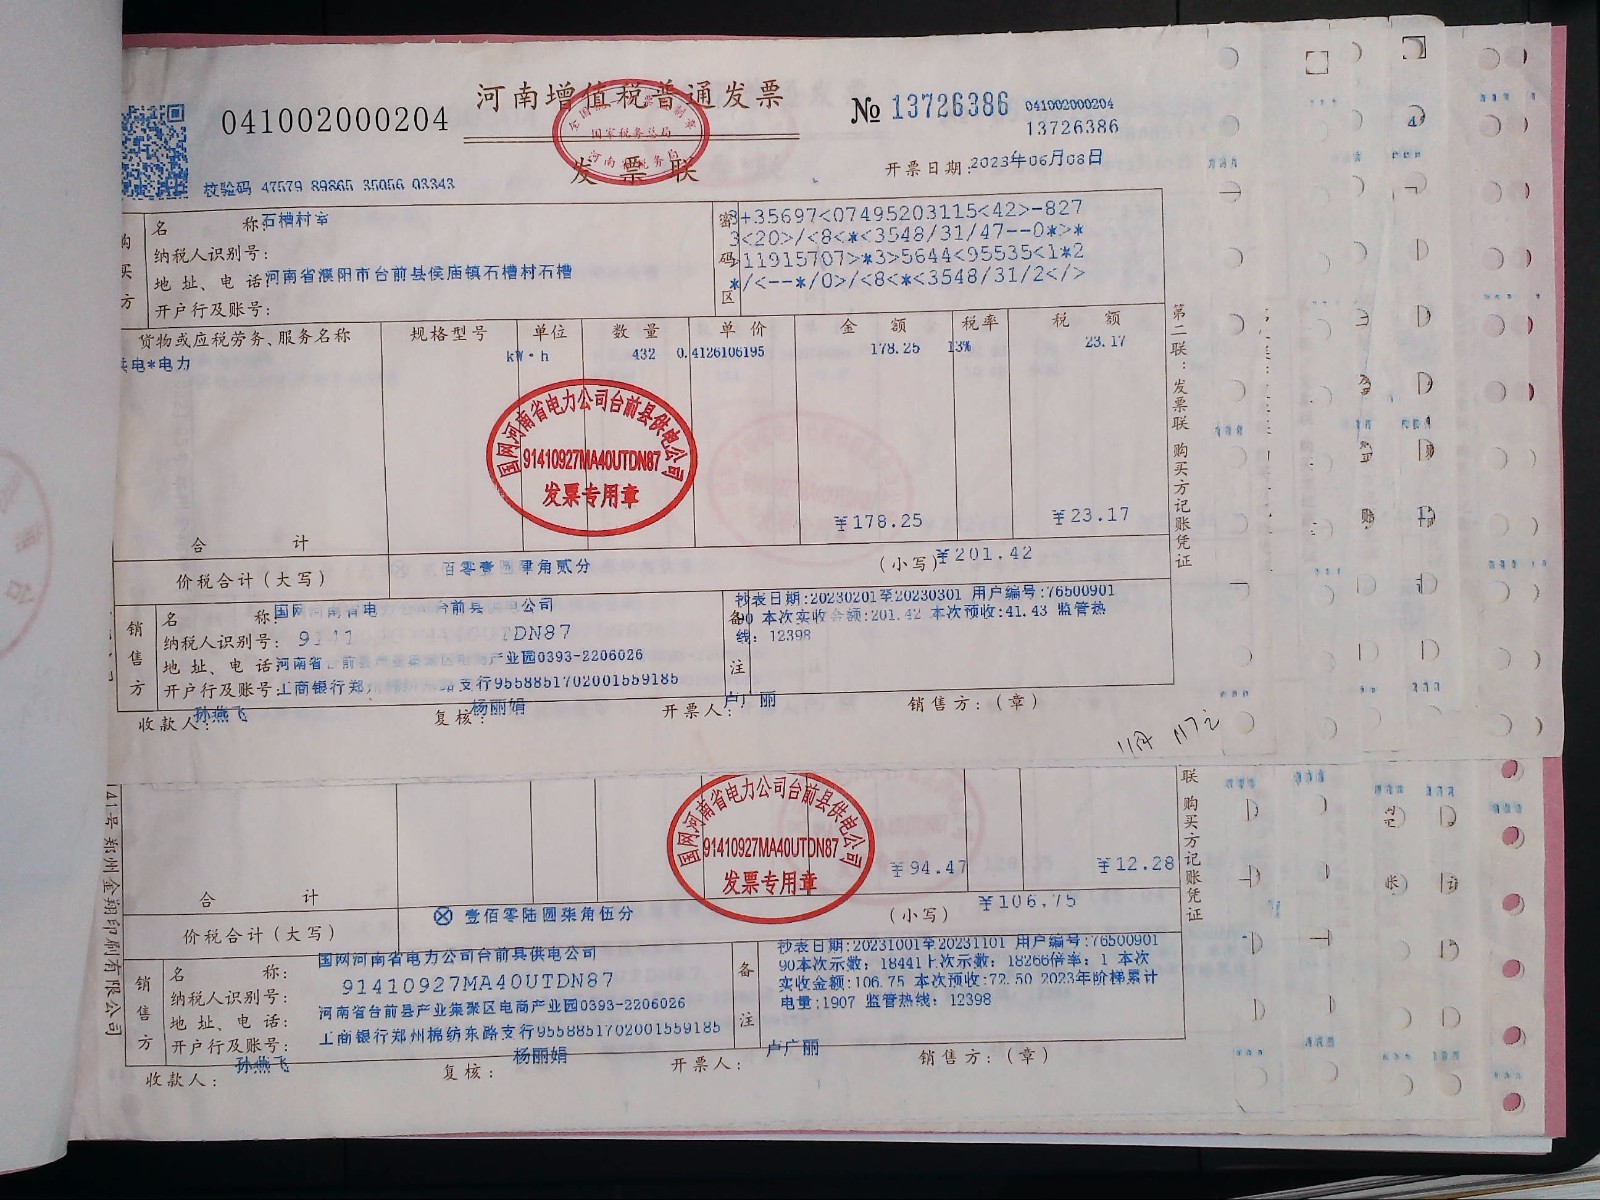 河南增值税普通发票
041002000204
№ 13726386
041002000204
13726386
发票联
国家税务总局
开票日期:2023年06月08日
校验码 47579 89865 35056 03343
购买方
名称:石槽村室
纳税人识别号:
地址、电话:河南省濮阳市台前县侯庙镇石槽村石槽
开户行及账号:
密码区
3+35697<07495203115<42>-827
3<20>/<8<*<3548/31/47--0*>*
11915707>*3>5644<95535<1*2
*/<--*/0>/<8<*<3548/31/2</>
货物或应税劳务、服务名称 规格型号 单位 数量 单价 金额 税率 税额
供电*电力 kW·h 432 0.4126106195 178.25 13% 23.17
国网河南省电力公司台前县供电公司
91410927MA40UTDN87
发票专用章
合计 ¥178.25 ¥23.17
价税合计(大写) 佰零壹圆肆角贰分 (小写)¥201.42
销售方
名称:国网河南省电 台前县 电公司
纳税人识别号: 91 TDN87
地址、电话:河南省台前县产业集聚区电商产业园0393-2206026
开户行及账号:工商银行郑 路支行9558851702001559185
备注
抄表日期:20230201至20230301 用户编号:76500901
90 本次实收金额:201.42 本次预收:41.43 监管热
线: 12398
收款人: 孙燕飞 复核: 杨丽娟 开票人: 卢广丽 销售方:(章)
第二联:发票联 购买方记账凭证
国网河南省电力公司台前县供电公司
91410927MA40UTDN87
发票专用章
合计 ¥94.47 ¥12.28
价税合计(大写) ⊗ 壹佰零陆圆柒角伍分 (小写) ¥106.75
销售方
名称: 国网河南省电力公司台前县供电公司
纳税人识别号: 91410927MA40UTDN87
地址、电话: 河南省台前县产业集聚区电商产业园0393-2206026
开户行及账号: 工商银行郑州棉纺东路支行9558851702001559185
备注
抄表日期:20231001至20231101 用户编号:76500901
90本次示数: 18441上次示数: 18266倍率: 1 本次
实收金额:106.75 本次预收:72.50 2023年阶梯累计
电量:1907 监管热线: 12398
收款人: 孙燕飞 复核: 杨丽娟 开票人: 卢广丽 销售方:(章)
联 购买方记账凭证
141号郑州金翔印刷有限公司